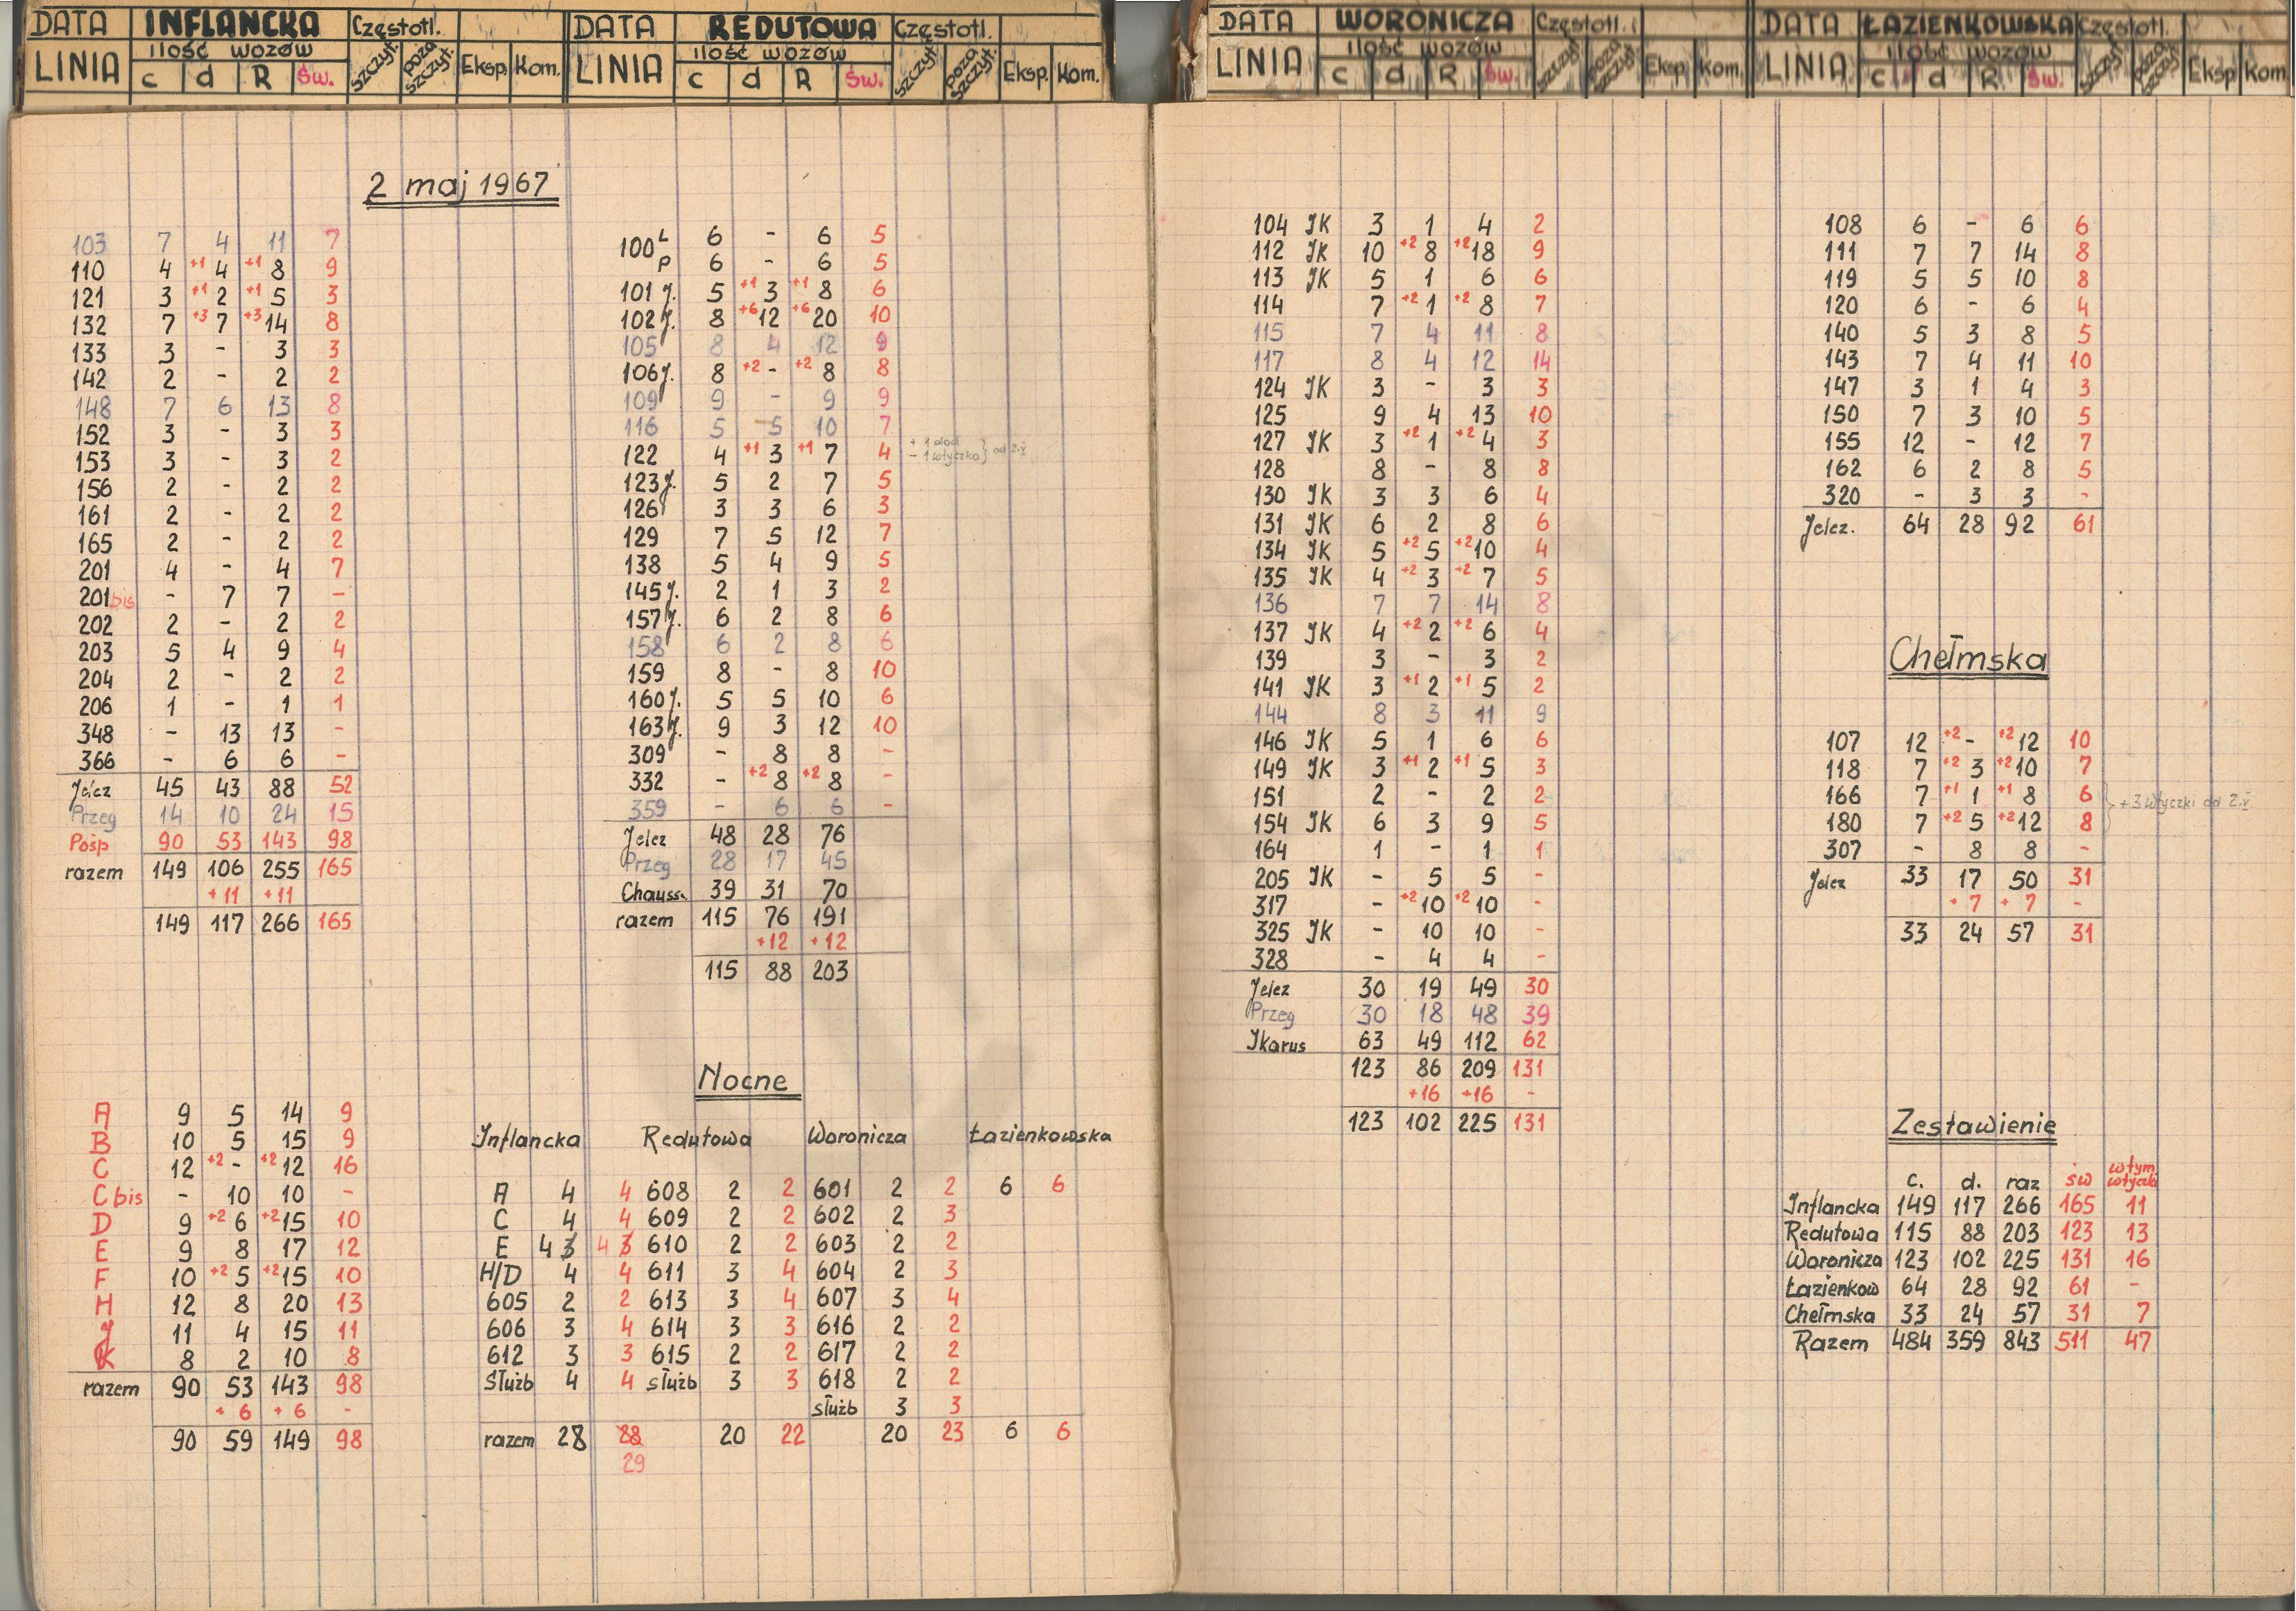 DATA INFLANCKA Częstotl.
LINIA ilość wozów szczyt. poza szczyt. Eksp. Kom.
c d R Św.
2 maj 1967
103 7 4 11 7
110 4 +1 4 +1 8 9
121 3 +1 2 +1 5 3
132 7 +3 7 +3 14 8
133 3 - 3 3
142 2 - 2 2
148 7 6 13 8
152 3 - 3 3
153 3 - 3 2
156 2 - 2 2
161 2 - 2 2
165 2 - 2 2
201 4 - 4 7
201bis - 7 7 -
202 2 - 2 2
203 5 4 9 4
204 2 - 2 2
206 1 - 1 1
348 - 13 13 -
366 - 6 6 -
Jelcz 45 43 88 52
Przeg 14 10 24 15
Pośp 90 53 143 98
razem 149 106 255 165
+11 +11
149 117 266 165
A 9 5 14 9
B 10 5 15 9
C 12 +2 - +2 12 16
C bis - 10 10 -
D 9 +2 6 +2 15 10
E 9 8 17 12
F 10 +2 5 +2 15 10
H 12 8 20 13
J 11 4 15 11
K 8 2 10 8
razem 90 53 143 98
+ 6 + 6 -
90 59 149 98
DATA REDUTOWA Częstotl.
LINIA ilość wozów szczyt. poza szczyt. Eksp. Kom.
c d R Św.
100 L 6 - 6 5
P 6 - 6 5
101 J. 5 +1 3 +1 8 6
102 J. 8 +6 12 +6 20 10
105 8 4 12 9
106 J. 8 +2 - +2 8 8
109 9 - 9 9
116 5 5 10 7
122 4 +1 3 +1 7 4 + 1 dod - 1 wtyczka } od 2.V
123 J. 5 2 7 5
126 3 3 6 3
129 7 5 12 7
138 5 4 9 5
145 J. 2 1 3 2
157 J. 6 2 8 6
158 6 2 8 6
159 8 - 8 10
160 J. 5 5 10 6
163 J. 9 3 12 10
309 - 8 8 -
332 - +2 8 +2 8 -
359 - 6 6 -
Jelcz 48 28 76
Przeg 28 17 45
Chauss. 39 31 70
razem 115 76 191
+12 +12
115 88 203
Nocne
Inflancka Redutowa Woronicza Łazienkowska
A 4 4 608 2 2 601 2 2 6 6
C 4 4 609 2 2 602 2 3
E 4 3 4 3 610 2 2 603 2 2
H/D 4 4 611 3 4 604 2 3
605 2 2 613 3 4 607 3 4
606 3 4 614 3 3 616 2 2
612 3 3 615 2 2 617 2 2
Służb 4 4 służb 3 3 618 2 2
służb 3 3
razem 28 28 20 22 20 23 6 6
29
DATA WORONICZA Częstotl.
LINIA ilość wozów szczyt poza szczyt. Eksp Kom.
c d R Św.
104 JK 3 1 4 2
112 JK 10 +2 8 +2 18 9
113 JK 5 1 6 6
114 7 +2 1 +2 8 7
115 7 4 11 8
117 8 4 12 14
124 JK 3 - 3 3
125 9 4 13 10
127 JK 3 +2 1 +2 4 3
128 8 - 8 8
130 JK 3 3 6 4
131 JK 6 2 8 6
134 JK 5 +2 5 +2 10 4
135 JK 4 +2 3 +2 7 5
136 7 7 14 8
137 JK 4 +2 2 +2 6 4
139 3 - 3 2
141 JK 3 +1 2 +1 5 2
144 8 3 11 9
146 JK 5 1 6 6
149 JK 3 +1 2 +1 5 3
151 2 - 2 2
154 JK 6 3 9 5
164 1 - 1 1
205 JK - 5 5 -
317 - +2 10 +2 10 -
325 JK - 10 10 -
328 - 4 4 -
Jelcz 30 19 49 30
Przeg 30 18 48 39
Jkarus 63 49 112 62
123 86 209 131
+16 +16 -
123 102 225 131
DATA ŁAZIENKOWSKA Częstotl.
LINIA ilość wozów szczyt poza szczyt. Eksp Kom
c d R. Św.
108 6 - 6 6
111 7 7 14 8
119 5 5 10 8
120 6 - 6 4
140 5 3 8 5
143 7 4 11 10
147 3 1 4 3
150 7 3 10 5
155 12 - 12 7
162 6 2 8 5
320 - 3 3 -
Jelcz. 64 28 92 61
Chełmska
107 12 +2 - +2 12 10
118 7 +2 3 +2 10 7
166 7 +1 1 +1 8 6
} +3 wtyczki od 2.V
180 7 +2 5 +2 12 8
307 - 8 8 -
Jelcz 33 17 50 31
+ 7 + 7 -
33 24 57 31
Zestawienie
c. d. raz św w tym wtyczki
Inflancka 149 117 266 165 11
Redutowa 115 88 203 123 13
Woronicza 123 102 225 131 16
Łazienkow 64 28 92 61 -
Chełmska 33 24 57 31 7
Razem 484 359 843 511 47